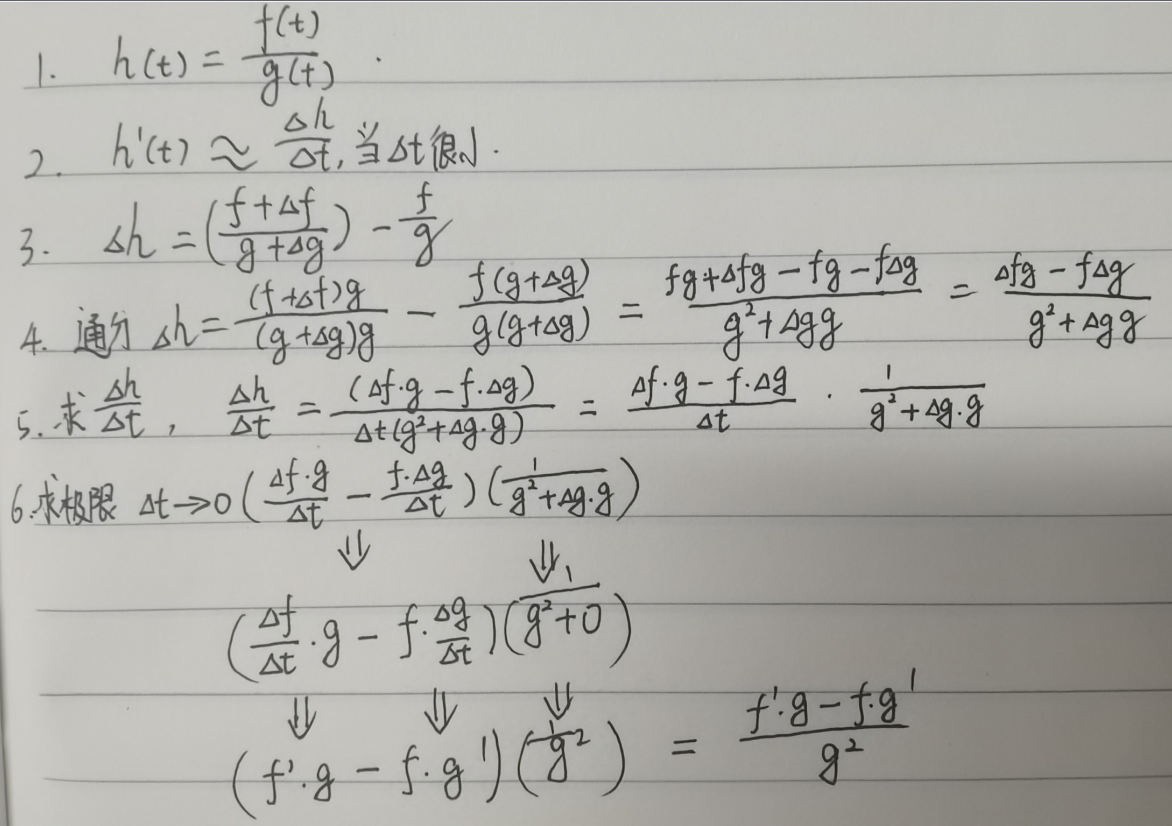 1. h(t) = f(t)/g(t) .
2. h'(t) ≈ Δh/Δt, 当Δt很小.
3. Δh = ((f+Δf)/(g+Δg)) - f/g
4. 通分 Δh = (f+Δf)g/(g+Δg)g - f(g+Δg)/g(g+Δg) = (fg+Δfg-fg-fΔg)/(g²+Δgg) = (Δfg-fΔg)/(g²+Δgg)
5. 求 Δh/Δt, Δh/Δt = (Δf·g-f·Δg)/Δt(g²+Δg·g) = (Δf·g-f·Δg)/Δt · 1/(g²+Δg·g)
6. 求极限 Δt→0 (Δf·g/Δt - f·Δg/Δt)(1/(g²+Δg·g))
⇓ ⇓
(Δf/Δt·g - f·Δg/Δt)(1/(g²+0))
⇓ ⇓ ⇓
(f'·g - f·g')(1/g²) = (f'·g-f·g')/g²